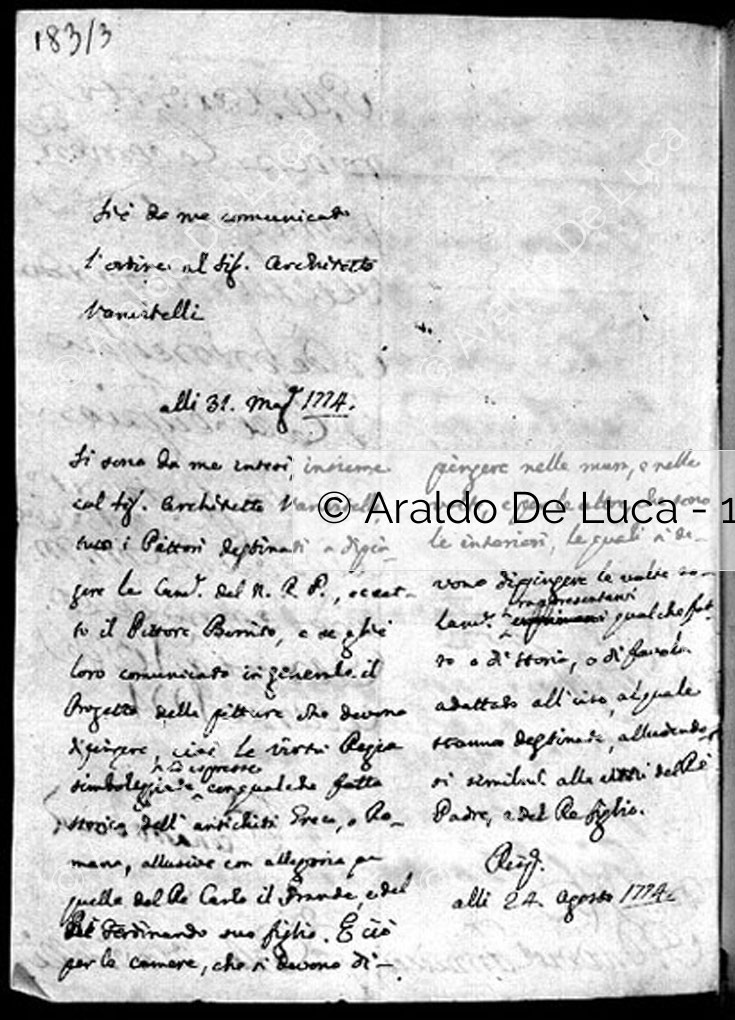 183/3
Si è da me comunicato
l'ordine al Sig. Architetto
Vanvitelli
alli 31. Mag. 1774.
Si sono da me intesi, insieme
col Sig. Architetto Vanvitelli
tutti i Pittori destinati a dipin-
gere le Cam. del R. P., eccet-
to il Pittore Bonito, e se gli è
loro comunicato in generale il
Progetto delle pitture che devono
dipingere, cioè le virtù Regie
simboleggiate ed espresse con qualche fatto
storico dell'antichità Greca, o Ro-
mana, allusive con allegoria a
quella del Re Carlo il Grande, e del
Re Ferdinando suo figlio. E ciò
per le camere, che si devono di-
pingere nelle mura, e nelle
volte, e per le altre che sono
le interiori, le quali si de-
vono dippingere le volte so-
lam. rappresentanti qualche fat-
to o di storia, o di favola
adattado all'uso, al quale
stanno destinate, alludendo
si simil. alle del Re
Padre, e del Re figlio.
alli 24. Agosto 1774.
© Araldo De Luca - 1
© Araldo De Luca